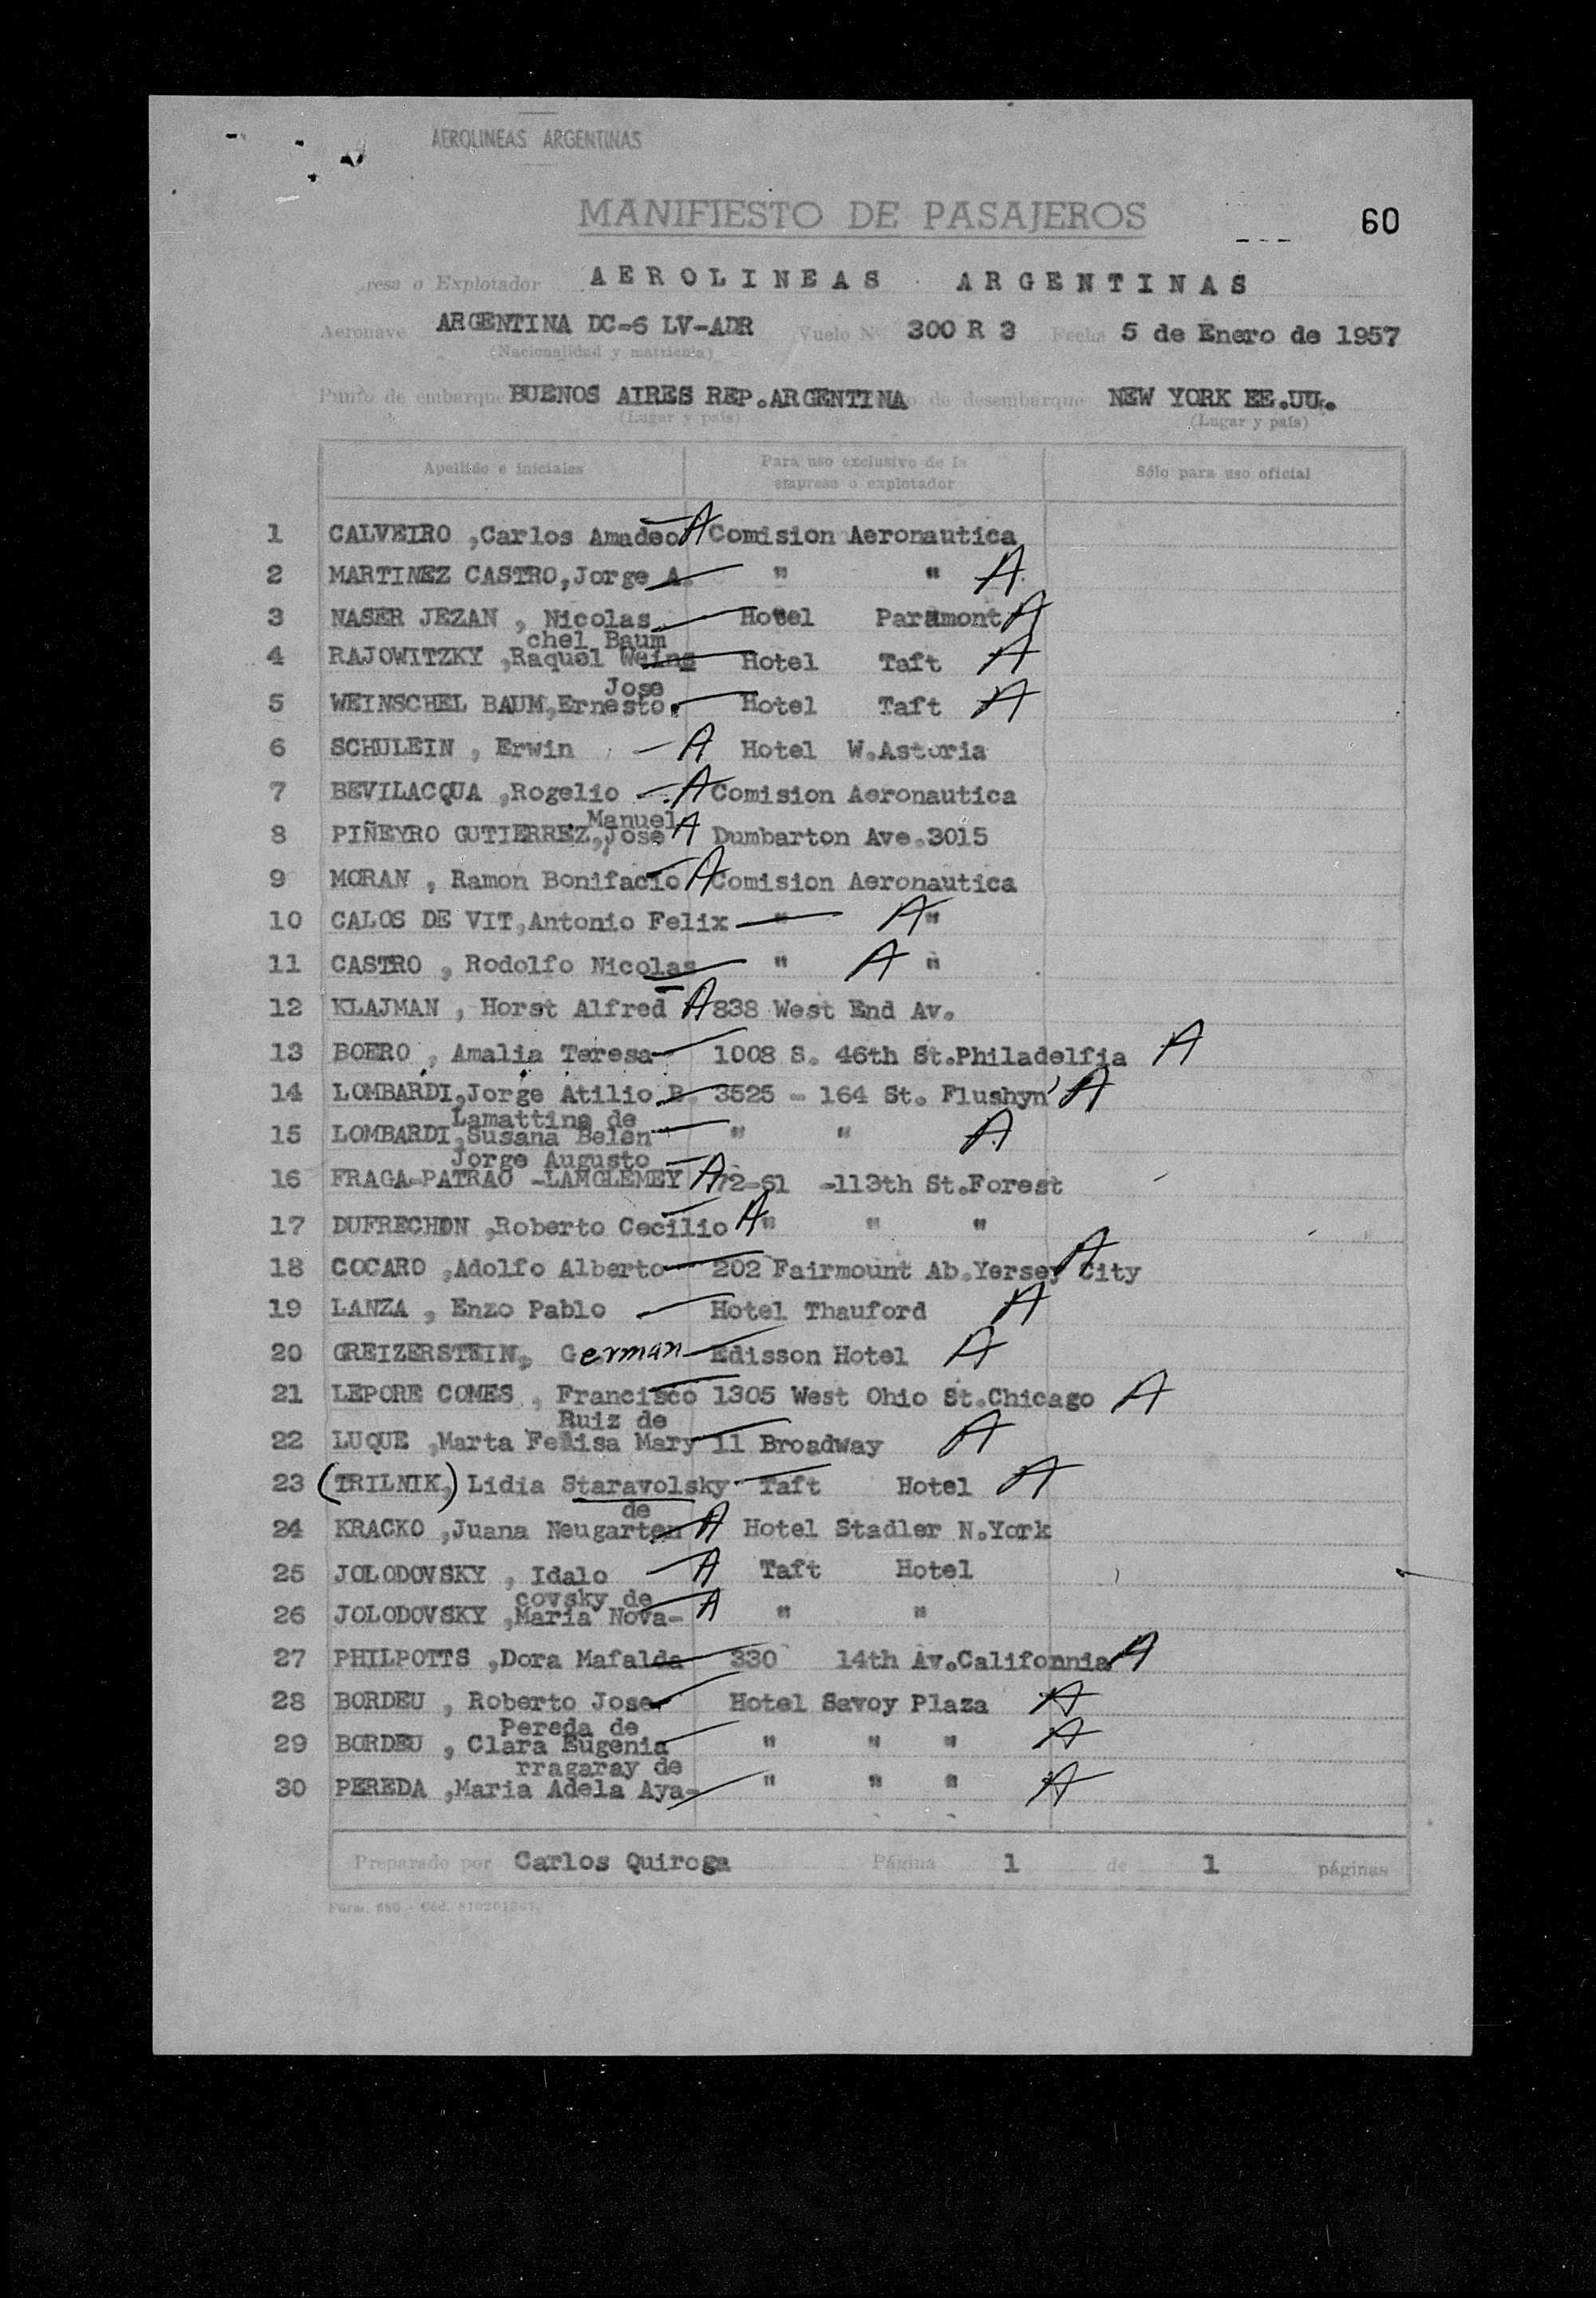 AEROLINEAS ARGENTINAS
MANIFIESTO DE PASAJEROS
60
resa o Explotador AEROLINEAS ARGENTINAS
Aeronave ARGENTINA DC-6 LV-ADR Vuelo Nº 300 R 3 Fecha 5 de Enero de 1957
(Nacionalidad y matricula)
Punto de embarque BUENOS AIRES REP.ARGENTINA o de desembarque NEW YORK EE.UU.
(Lugar y país) (Lugar y país)
Apellido e iniciales Para uso exclusivo de la empresa o explotador Sólo para uso oficial
1 CALVEIRO ,Carlos Amadeo A Comision Aeronautica
2 MARTINEZ CASTRO,Jorge A. " " A
3 NASER JEZAN , Nicolas Hotel Paramont A
chel Baum
4 RAJOWITZKY ,Raquel Weins Hotel Taft A
Jose
5 WEINSCHEL BAUM,Ernesto. Hotel Taft A
6 SCHULEIN , Erwin A Hotel W.Astoria
7 BEVILACQUA ,Rogelio A Comision Aeronautica
Manuel
8 PIÑEYRO GUTIERREZ,Jose A Dumbarton Ave.3015
9 MORAN , Ramon Bonifacio A Comision Aeronautica
10 CALOS DE VIT,Antonio Felix " A "
11 CASTRO , Rodolfo Nicolas " A "
12 KLAJMAN , Horst Alfred A 838 West End Av.
13 BOERO , Amalia Teresa 1008 S. 46th St.Philadelfia A
14 LOMBARDI,Jorge Atilio B. 3525 - 164 St. Flushyn' A
Lamattina de
15 LOMBARDI,Susana Belen " " A
Jorge Augusto
16 FRAGA-PATRAO -LAMGLEMEY A 72-61 -113th St.Forest
17 DUFRECHON ,Roberto Cecilio A " " "
18 COCARO ,Adolfo Alberto 202 Fairmount Ab.Yersey City A
19 LANZA , Enzo Pablo Hotel Thauford A
20 GREIZERSTEIN, German Edisson Hotel A
21 LEPORE COMES , Francisco 1305 West Ohio St.Chicago A
Ruiz de
22 LUQUE ,Marta Felisa Mary 11 Broadway A
23 (TRILNIK,) Lidia Staravolsky Taft Hotel A
de
24 KRACKO ,Juana Neugarten A Hotel Stadler N.York
25 JOLODOVSKY , Idalo A Taft Hotel
covsky de
26 JOLODOVSKY ,Maria Nova- A " "
27 PHILPOTTS ,Dora Mafalda 330 14th Av.Califonnia A
28 BORDEU , Roberto Jose Hotel Savoy Plaza A
Pereda de
29 BORDEU , Clara Eugenia " " " A
rragaray de
30 PEREDA ,Maria Adela Aya- " " " A
Preparado por Carlos Quiroga Página 1 de 1 páginas
Form. 680 - Cód.